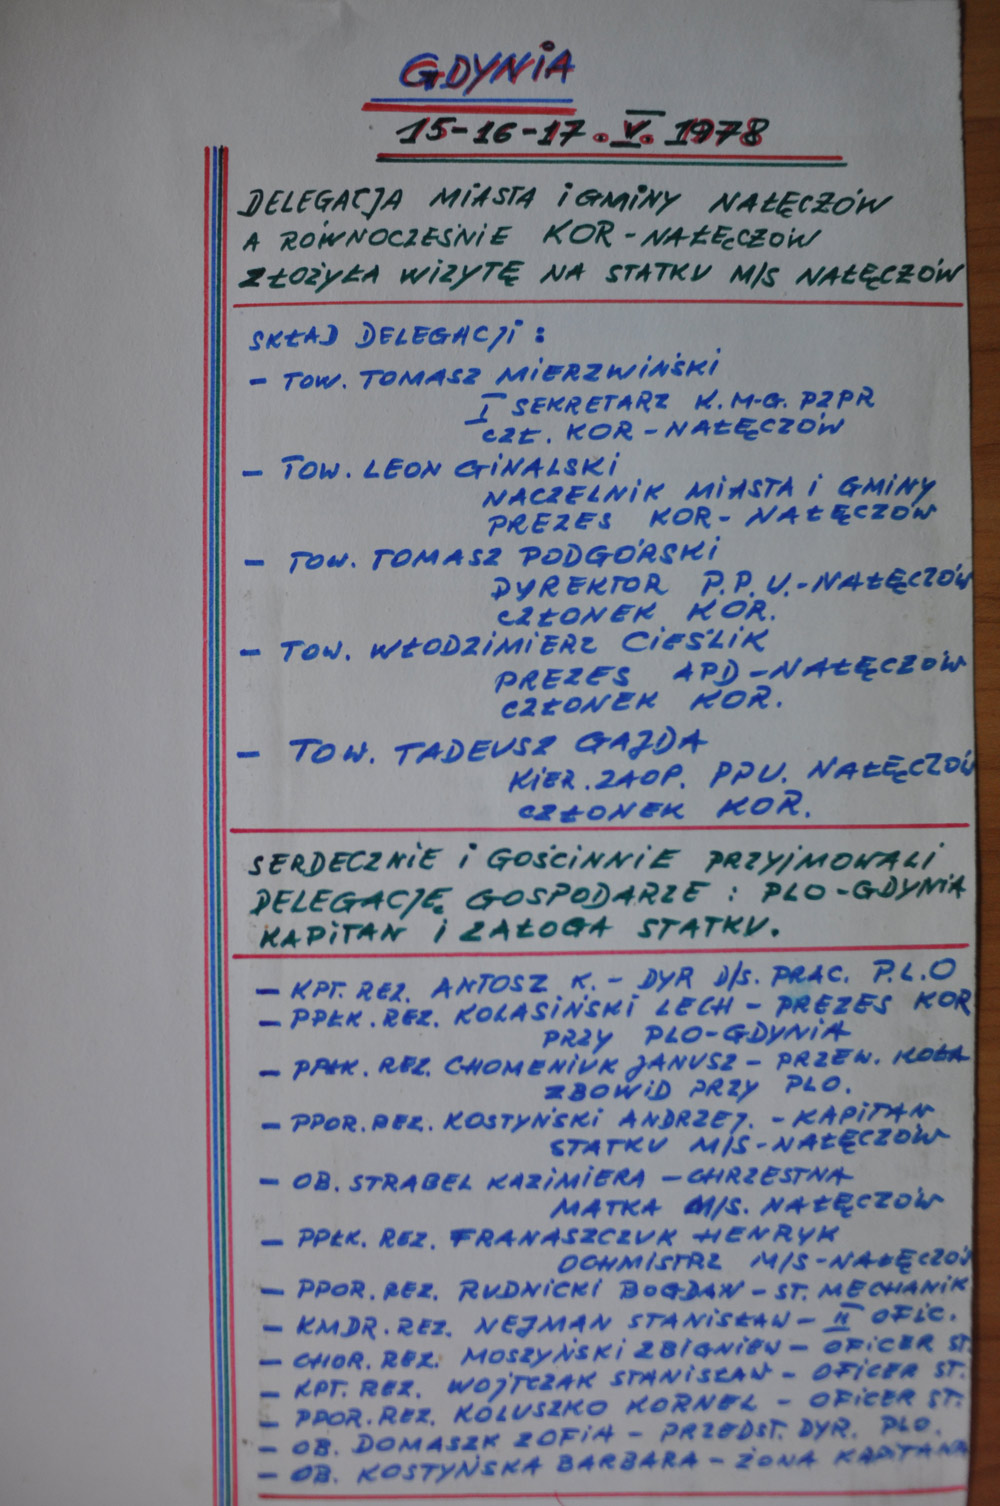 GDYNIA
15-16-17.V.1978
DELEGACJA MIASTA i GMINY NAŁĘCZÓW
A RÓWNOCZEŚNIE KOR-NAŁĘCZÓW
ZŁOŻYŁA WIZYTĘ NA STATKU M/S NAŁĘCZÓW
SKŁAD DELEGACJI:
- TOW. TOMASZ MIERZWIŃSKI
I SEKRETARZ K.M-G. PZPR
CZŁ. KOR-NAŁĘCZÓW
- TOW. LEON GINALSKI
NACZELNIK MIASTA i GMINY
PREZES KOR-NAŁĘCZÓW
- TOW. TOMASZ PODGÓRSKI
DYREKTOR P.P.U.-NAŁĘCZÓW
CZŁONEK KOR.
- TOW. WŁODZIMIERZ CIEŚLIK
PREZES APD-NAŁĘCZÓW
CZŁONEK KOR.
- TOW. TADEUSZ GAJDA
KIER. ZAOP. PPU. NAŁĘCZÓW
CZŁONEK KOR.
SERDECZNIE i GOŚCINNIE PRZYJMOWALI
DELEGACJĘ GOSPODARZE: PLO-GDYNIA
KAPITAN i ZAŁOGA STATKU.
- KPT. REZ. ANTOSZ K. - DYR D/S. PRAC. P.L.O
- PPŁK. REZ. KOLASIŃSKI LECH - PREZES KOR
PRZY PLO-GDYNIA
- PPŁK. REZ. CHOMENIUK JANUSZ - PRZEW. KOŁA
ZBOWID PRZY PLO.
- PPOR. REZ. KOSTYŃSKI ANDRZEJ. - KAPITAN
STATKU M/S-NAŁĘCZÓW
- OB. STRABEL KAZIMIERA - CHRZESTNA
MATKA M/S. NAŁĘCZÓW
- PPŁK. REZ. FRANASZCZUK HENRYK
OCHMISTRZ M/S-NAŁĘCZÓW
- PPOR. REZ. RUDNICKI BOGDAN - ST. MECHANIK
- KMDR. REZ. NEJMAN STANISŁAW - II OFIC.
- CHOR. REZ. MOSZYŃSKI ZBIGNIEW - OFICER ST.
- KPT. REZ. WOJTCZAK STANISŁAW - OFICER ST.
- PPOR. REZ. KOLUSZKO KORNEL - OFICER ST.
- OB. DOMASZK ZOFIA - PRZEDST. DYR. PLO.
- OB. KOSTYŃSKA BARBARA - ŻONA KAPITANA